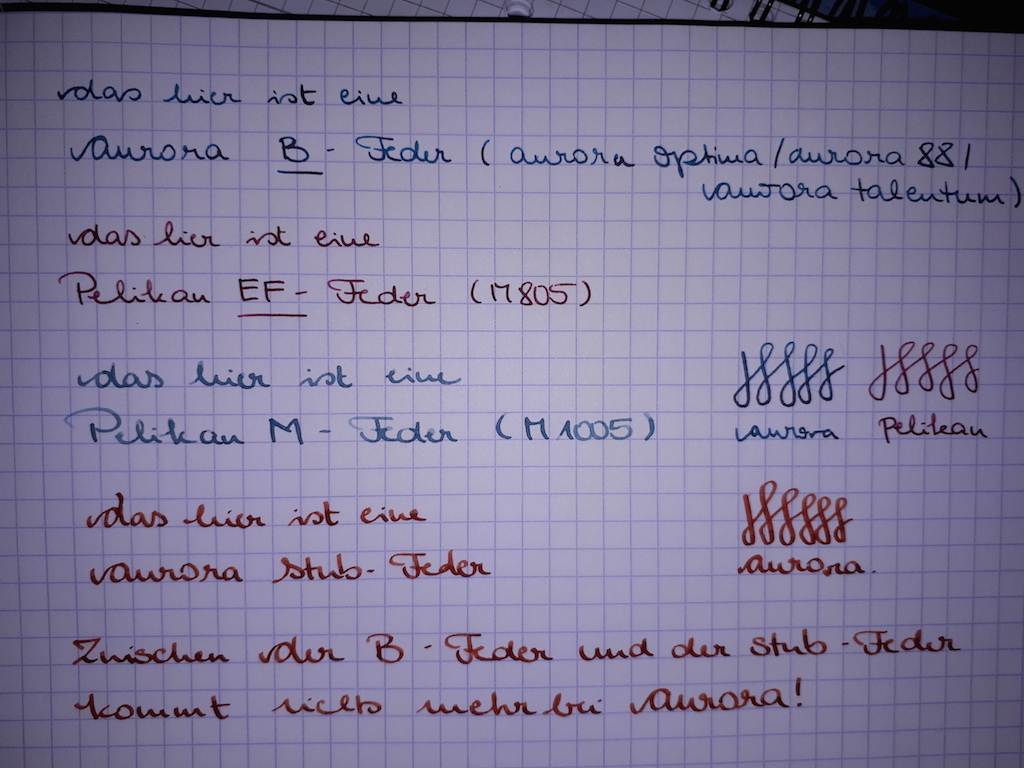 das hier ist eine
Aurora B - Feder ( aurora optima / aurora 88 /
aurora talentum )
das hier ist eine
Pelikan EF - Feder ( M805 )
das hier ist eine
Pelikan M - Feder ( M1005 )
aurora pelikan
das hier ist eine
aurora stub - Feder
aurora.
Zwischen der B - Feder und der stub - Feder
kommt nichts mehr bei Aurora!